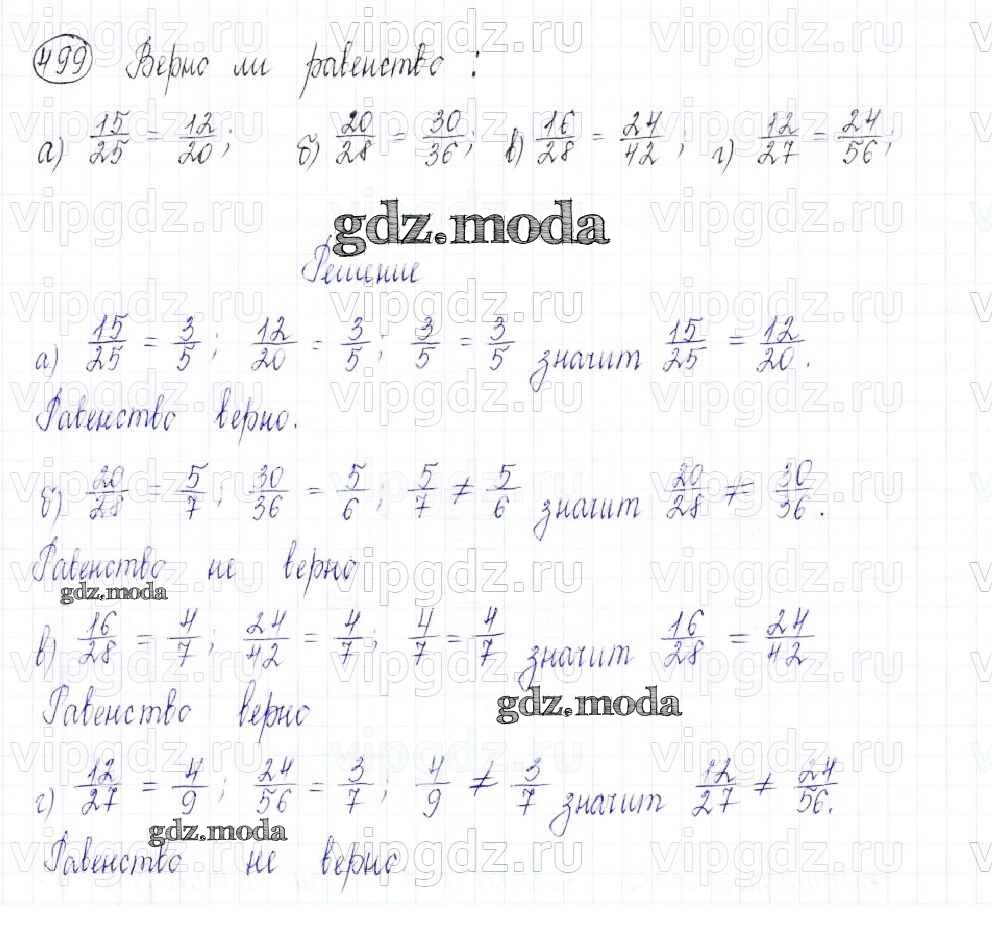 499 Верно ли равенство:
а) 15/25 = 12/20; б) 20/28 = 30/36; в) 16/28 = 24/42; г) 12/27 = 24/56;
gdz.moda
Решение
а) 15/25 = 3/5; 12/20 = 3/5; 3/5 = 3/5 значит 15/25 = 12/20.
Равенство верно.
б) 20/28 = 5/7; 30/36 = 5/6; 5/7 ≠ 5/6 значит 20/28 ≠ 30/36.
Равенство не верно
gdz.moda
в) 16/28 = 4/7; 24/42 = 4/7; 4/7 = 4/7 значит 16/28 = 24/42
Равенство верно
gdz.moda
г) 12/27 = 4/9; 24/56 = 3/7; 4/9 ≠ 3/7 значит 12/27 ≠ 24/56.
gdz.moda
Равенство не верно
vipgdz.ru